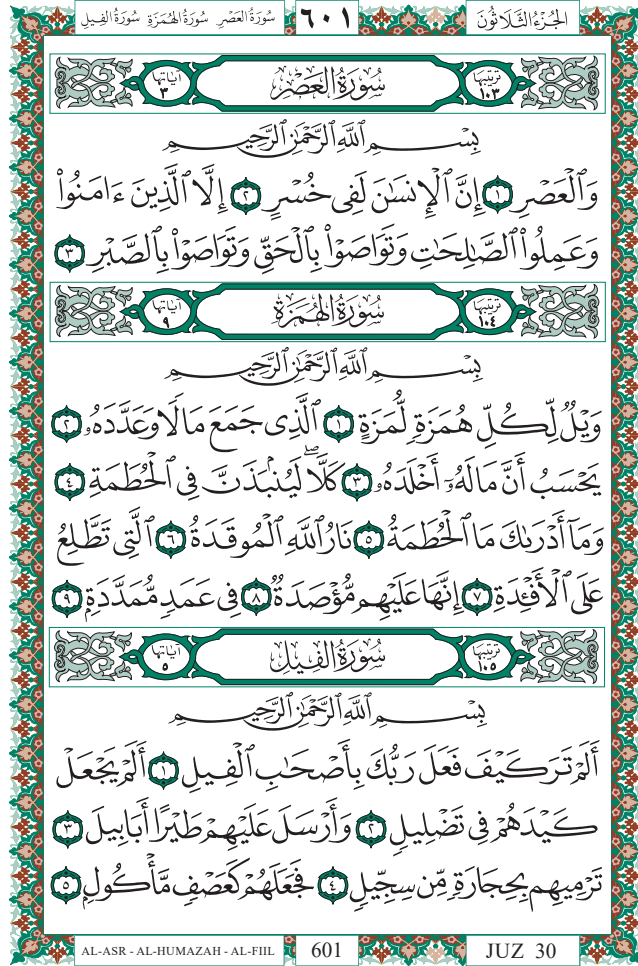 سُورَةُ العَصْرِ سُورَةُ الهُمَزَةِ سُورَةُ الفِيلِ ٦٠١ الجُزْءُ الثَّلَاثُونَ
ترتيبها ١٠٣ سُورَةُ العَصْرِ آياتها ٣
بِسْمِ ٱللَّهِ ٱلرَّحْمَٰنِ ٱلرَّحِيمِ
وَٱلْعَصْرِ ١ إِنَّ ٱلْإِنسَٰنَ لَفِى خُسْرٍ ٢ إِلَّا ٱلَّذِينَ ءَامَنُوا۟
وَعَمِلُوا۟ ٱلصَّٰلِحَٰتِ وَتَوَاصَوْا۟ بِٱلْحَقِّ وَتَوَاصَوْا۟ بِٱلصَّبْرِ ٣
ترتيبها ١٠٤ سُورَةُ الهُمَزَةِ آياتها ٩
بِسْمِ ٱللَّهِ ٱلرَّحْمَٰنِ ٱلرَّحِيمِ
وَيْلٌ لِّكُلِّ هُمَزَةٍ لُّمَزَةٍ ١ ٱلَّذِى جَمَعَ مَالًا وَعَدَّدَهُۥ ٢
يَحْسَبُ أَنَّ مَالَهُۥٓ أَخْلَدَهُۥ ٣ كَلَّا ۖ لَيُنۢبَذَنَّ فِى ٱلْحُطَمَةِ ٤
وَمَآ أَدْرَىٰكَ مَا ٱلْحُطَمَةُ ٥ نَارُ ٱللَّهِ ٱلْمُوقَدَةُ ٦ ٱلَّتِى تَطَّلِعُ
عَلَى ٱلْأَفْـِٔدَةِ ٧ إِنَّهَا عَلَيْهِم مُّؤْصَدَةٌ ٨ فِى عَمَدٍ مُّمَدَّدَةٍۭ ٩
ترتيبها ١٠٥ سُورَةُ الفِيلِ آياتها ٥
بِسْمِ ٱللَّهِ ٱلرَّحْمَٰنِ ٱلرَّحِيمِ
أَلَمْ تَرَ كَيْفَ فَعَلَ رَبُّكَ بِأَصْحَٰبِ ٱلْفِيلِ ١ أَلَمْ يَجْعَلْ
كَيْدَهُمْ فِى تَضْلِيلٍ ٢ وَأَرْسَلَ عَلَيْهِمْ طَيْرًا أَبَابِيلَ ٣
تَرْمِيهِم بِحِجَارَةٍ مِّن سِجِّيلٍ ٤ فَجَعَلَهُمْ كَعَصْفٍ مَّأْكُولٍۭ ٥
AL-ASR - AL-HUMAZAH - AL-FIIL 601 JUZ 30